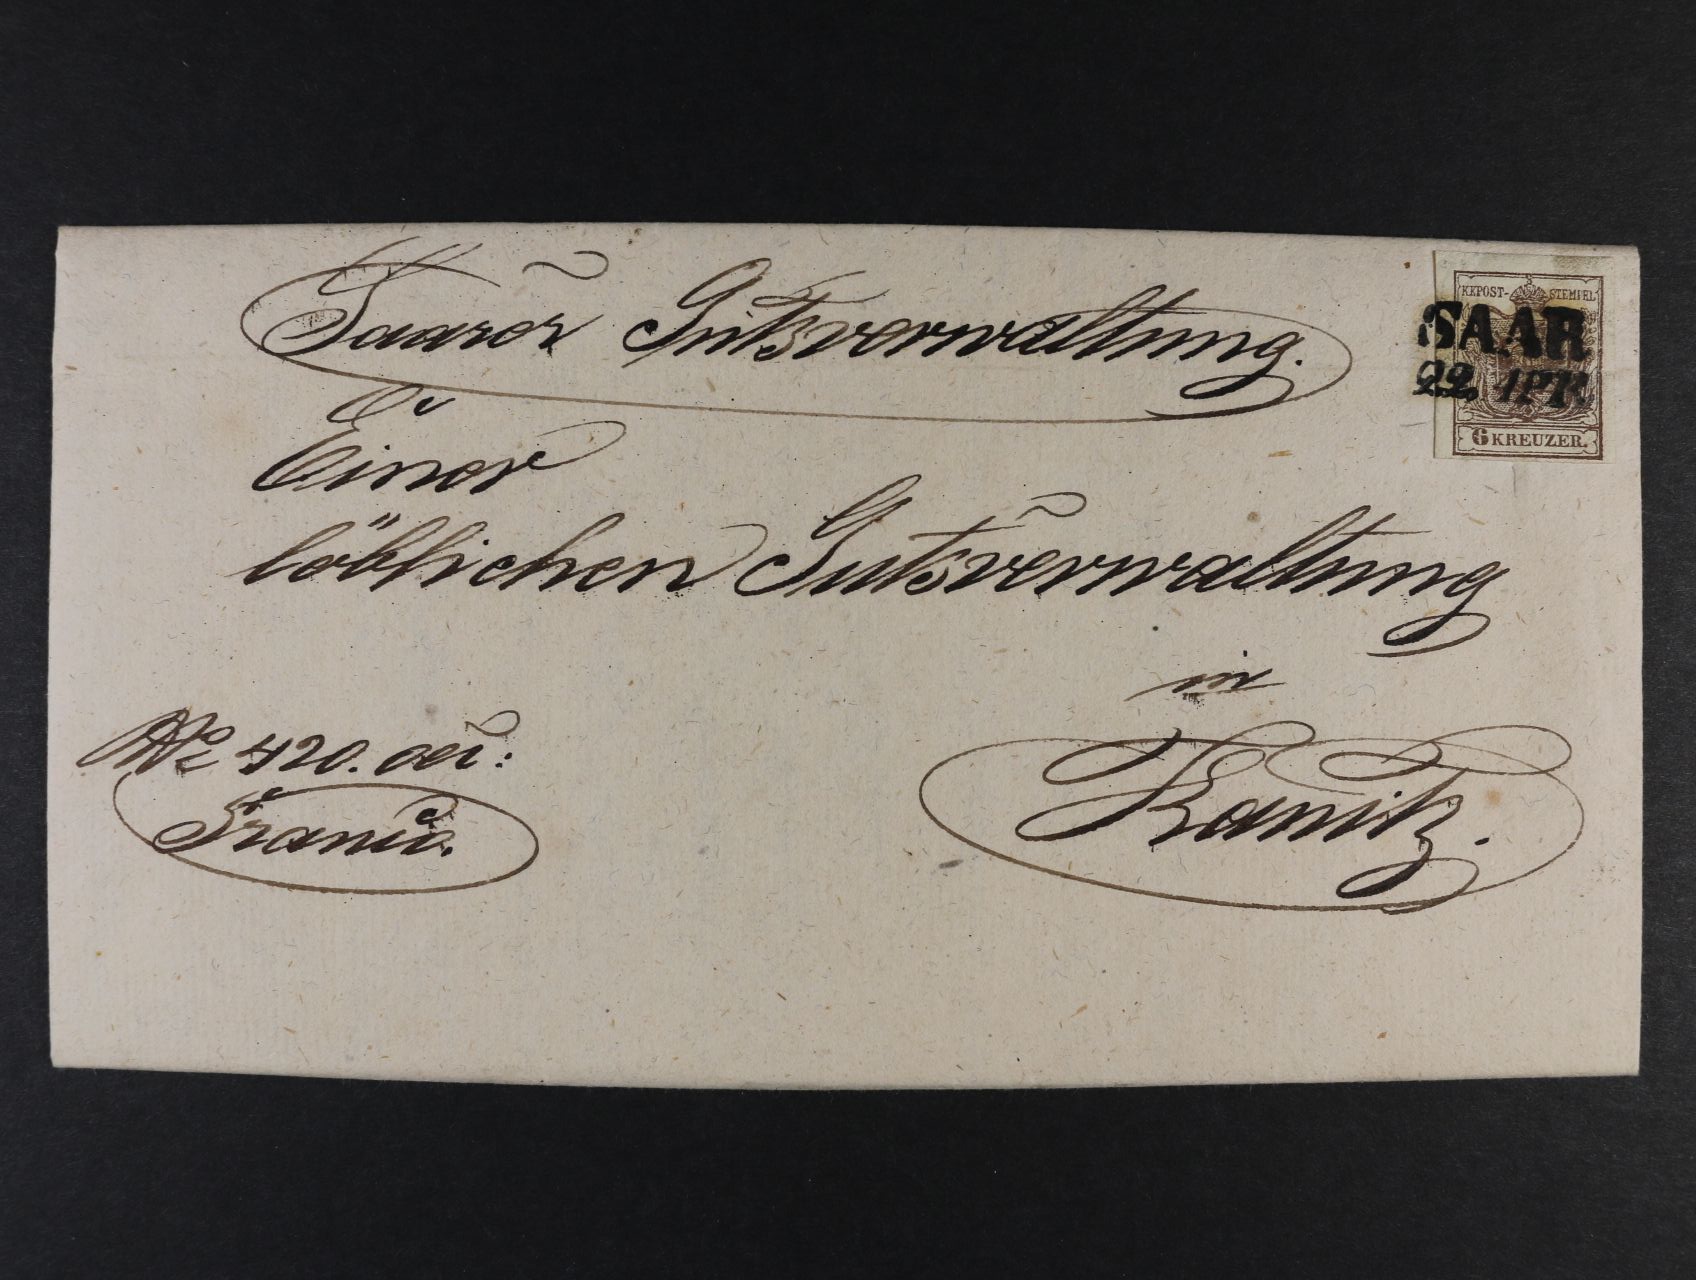 Saarer Gutsverwaltung.
KKPOST-STEMPEL
SAAR
22. APR
6 KREUZER.
Einer
löblichen Gutsverwaltung
in
Kanitz.
No 420. oei:
Franco.